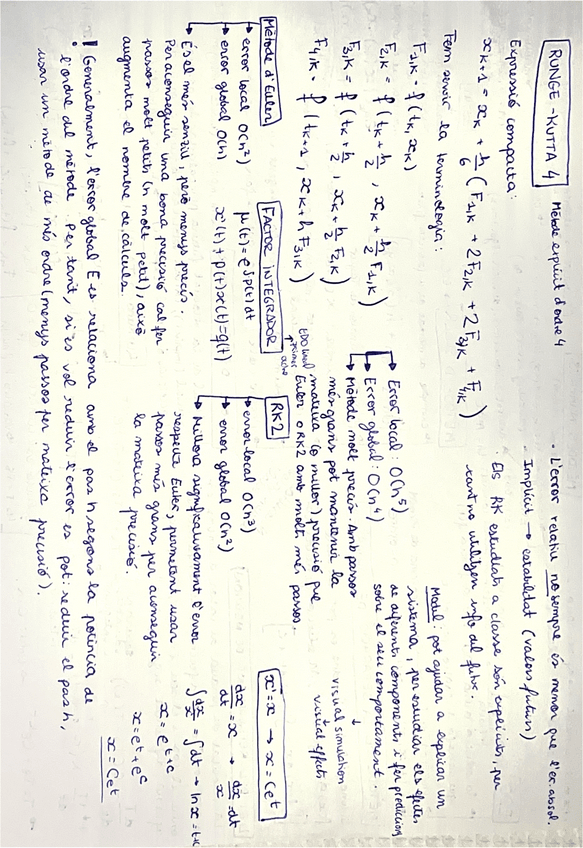 RUNGE-KUTTA 4 Mètode explícit d'ordre 4
Expressió compacta:
x_{k+1} = x_k + h/6 (F_{1,k} + 2F_{2,k} + 2F_{3,k} + F_{4,k})
Fem servir la terminologia:
F_{1,k} = f(t_k, x_k)
F_{2,k} = f(t_k + h/2, x_k + h/2 F_{1,k})
F_{3,k} = f(t_k + h/2, x_k + h/2 F_{2,k})
F_{4,k} = f(t_{k+1}, x_k + h F_{3,k})
→ Error local: O(h⁵)
→ Error global: O(h⁴)
→ Mètode molt precís. Amb passos
més grans pot mantenir la
mateixa (o millor) precisió que
Euler o RK2 amb molts més passos.
- L'error relatiu no sempre és menor que l'er. absol.
- Implícit → estabilitat (valors futurs)
Els RK estudiats a classe són explícits, per
tant no utilitzen info del futur.
Model: pot ajudar a explicar un
sistema, per estudiar els efectes
de diferents components i fer prediccions
sobre el seu comportament.
↓
visual simulation
visual effects
Mètode d'Euler
→ error local O(h²)
→ error global O(h)
→ És el més senzill, però menys precís.
Per aconseguir una bona precisió cal fer
passos molt petits (h molt petit), això
augmenta el nombre de càlculs.
FACTOR INTEGRADOR
EDO lineal
primer
ordre
μ(t) = e^{∫p(t)dt}
x'(t) + p(t)x(t) = q(t)
RK2
→ error local O(h³)
→ error global O(h²)
→ Millora significativament l'error
respecte Euler, permetent usar
passos més grans per aconseguir
la mateixa precisió.
x' = x → x = Ce^t
dx/dt = x → dx/x = dt
∫dx/x = ∫dt → ln x = t+c
x = e^{t+c}
x = e^t + e^c
x = Ce^t
! Generalment, l'error global E es relaciona amb el pas h segons la potència de
l'ordre del mètode. Per tant, si es vol reduir l'error es pot: reduir el pas h,
usar un mètode de més ordre (menys passos per mateixa precisió).